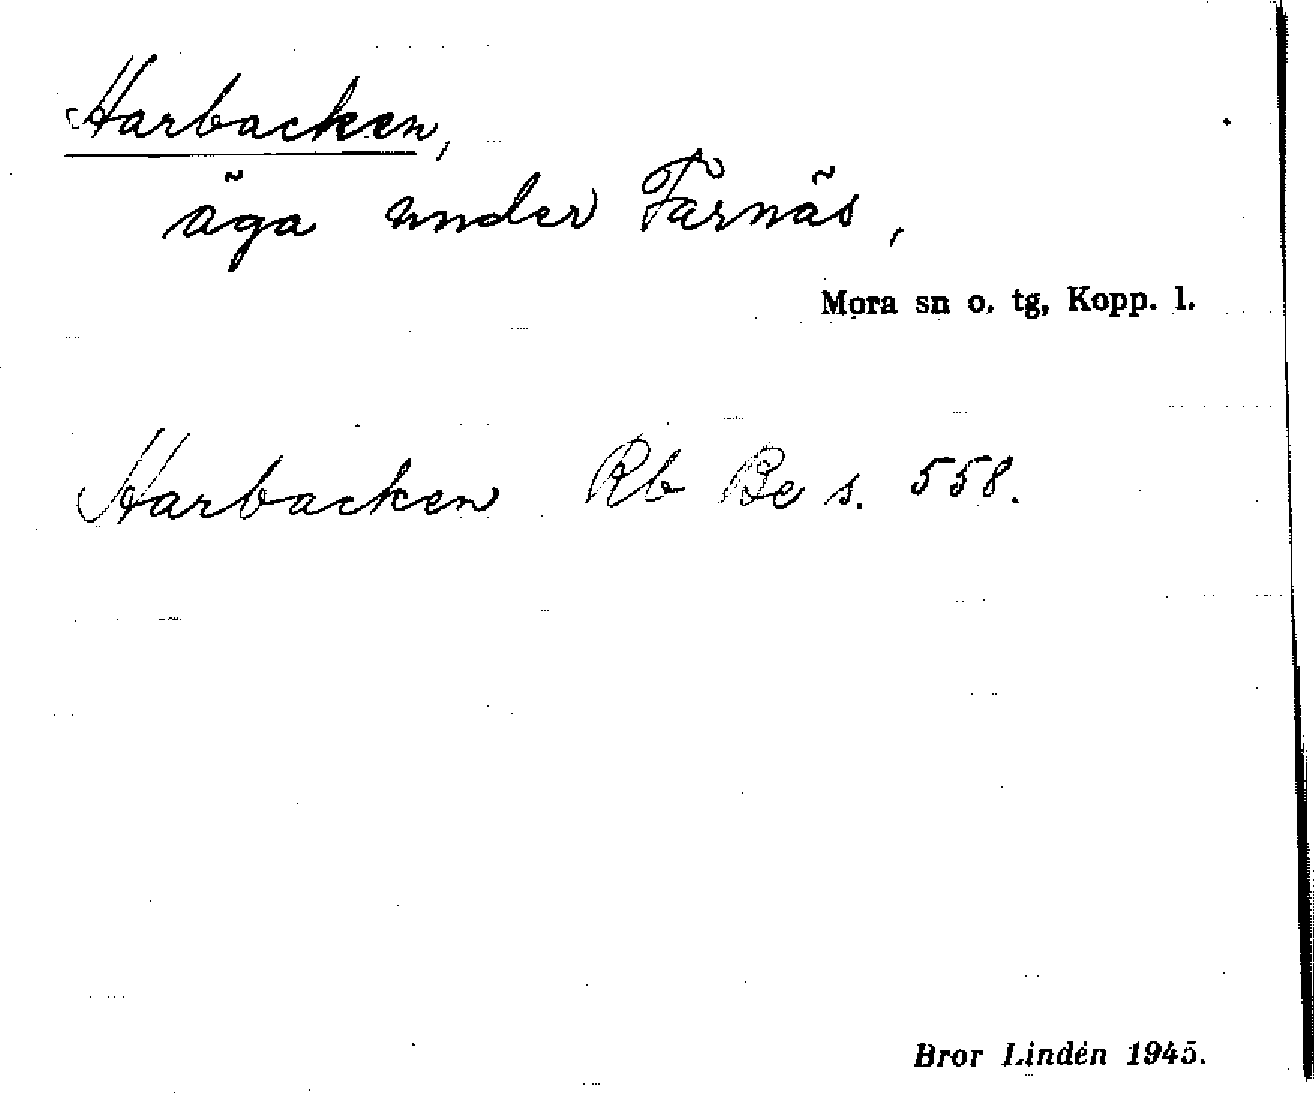 Harbacken,
äga under Färnäs,
Mora sn o. tg, Kopp. l.
Harbacken Rb Be s. 558.
Bror Lindén 1945.